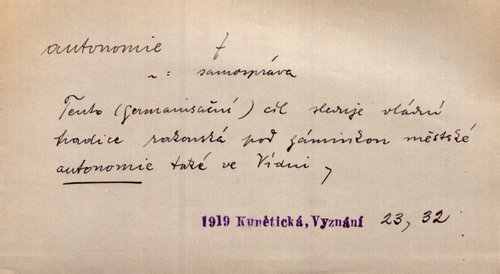 autonomie f
~: samospráva
Tento (germanisační) cíl sleduje vládní
tradice rakouská pod záminkou městské
autonomie také ve Vídni,
1919 Kunětická, Vyznání 23, 32